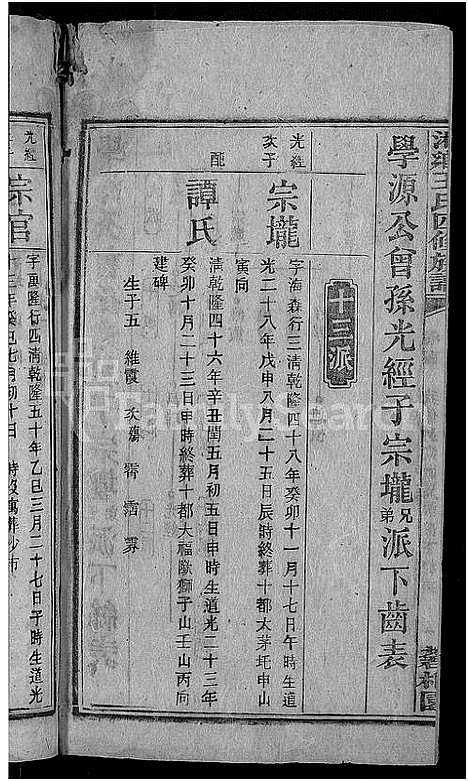 學源公曾孫光經子宗壠兄弟派下齒表
十三派
光經
次子
宗壠
字海森行三清乾隆四十八年癸卯十一月十七日午時生道
光二十八年戊申八月二十五日辰時終葬十都大茅坵申山
寅向
配
譚氏
清乾隆四十六年辛丑閏五月初五日申時生道光二十三年
癸卯十月二十三日申時終葬十都大福歐獅子山壬山丙向
建碑
生子五 維霞 次靄 霄 霑 霧
光經
宗官
字萬隆行四清乾隆五十年乙巳三月二十七日子時生道光
FamilySearch